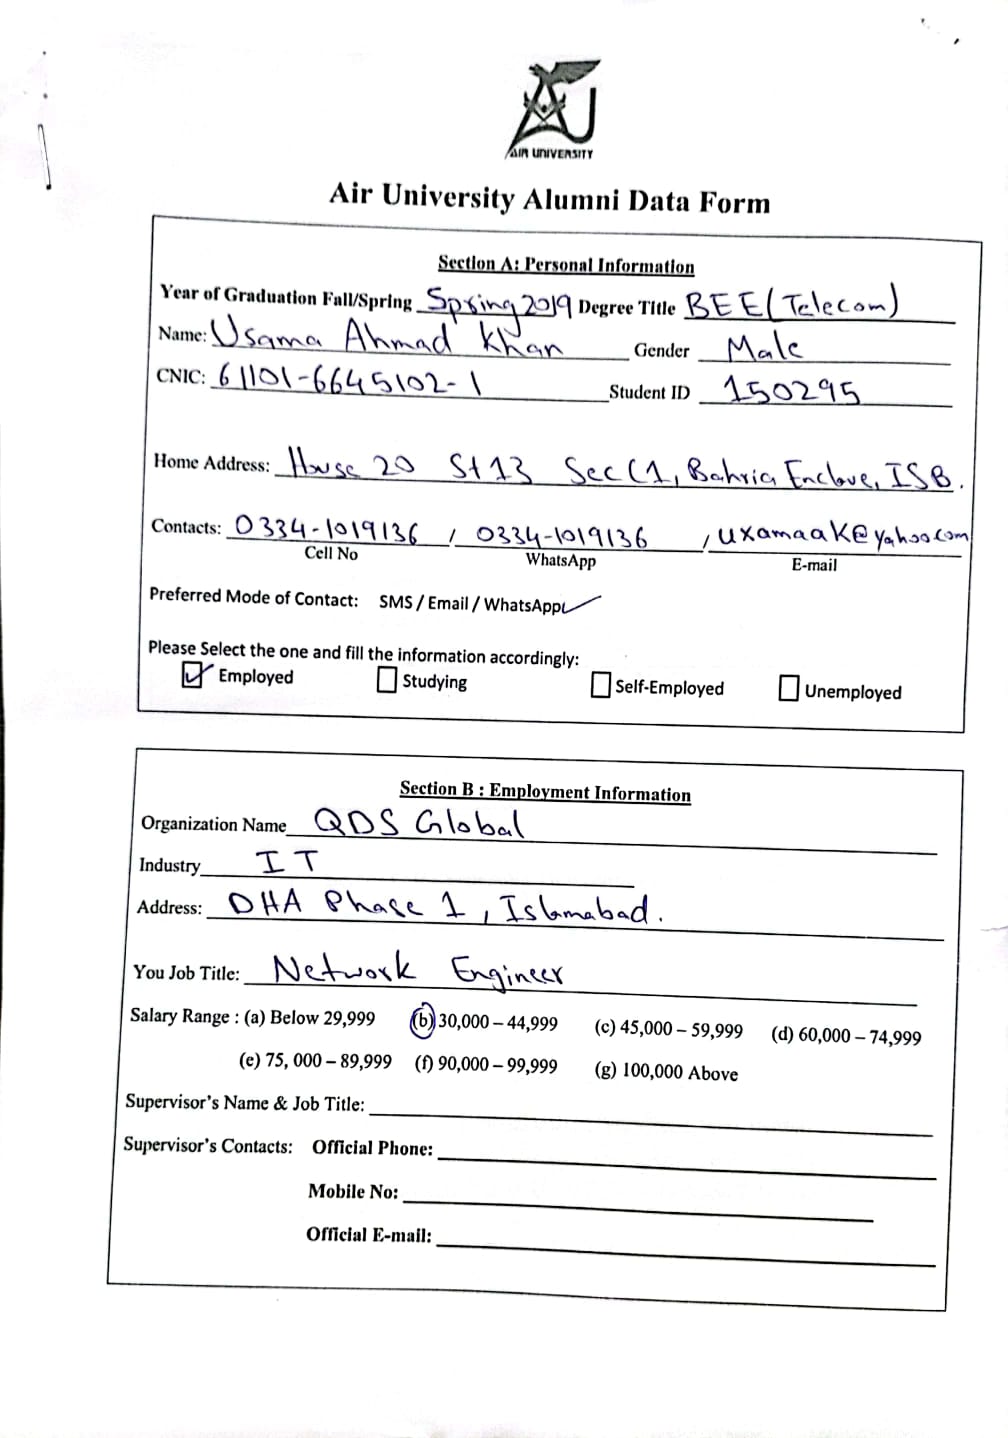 AIR UNIVERSITY
Air University Alumni Data Form
Section A: Personal Information
Year of Graduation Fall/Spring Spring 2019 Degree Title BEE (Telecom)
Name: Usama Ahmad Khan Gender Male
CNIC: 61101-6645102-1 Student ID 150295
Home Address: House 20 St 13 Sec C1, Bahria Enclave, ISB.
Contacts: 0334-1019136 / 0334-1019136 / uxamaak@yahoo.com
Cell No WhatsApp E-mail
Preferred Mode of Contact: SMS / Email / WhatsApp
Please Select the one and fill the information accordingly:
Employed Studying Self-Employed Unemployed
Section B : Employment Information
Organization Name QDS Global
Industry IT
Address: DHA Phase 1, Islamabad.
You Job Title: Network Engineer
Salary Range : (a) Below 29,999 (b) 30,000 – 44,999 (c) 45,000 – 59,999 (d) 60,000 – 74,999
(e) 75, 000 – 89,999 (f) 90,000 – 99,999 (g) 100,000 Above
Supervisor's Name & Job Title:
Supervisor's Contacts: Official Phone:
Mobile No:
Official E-mail: